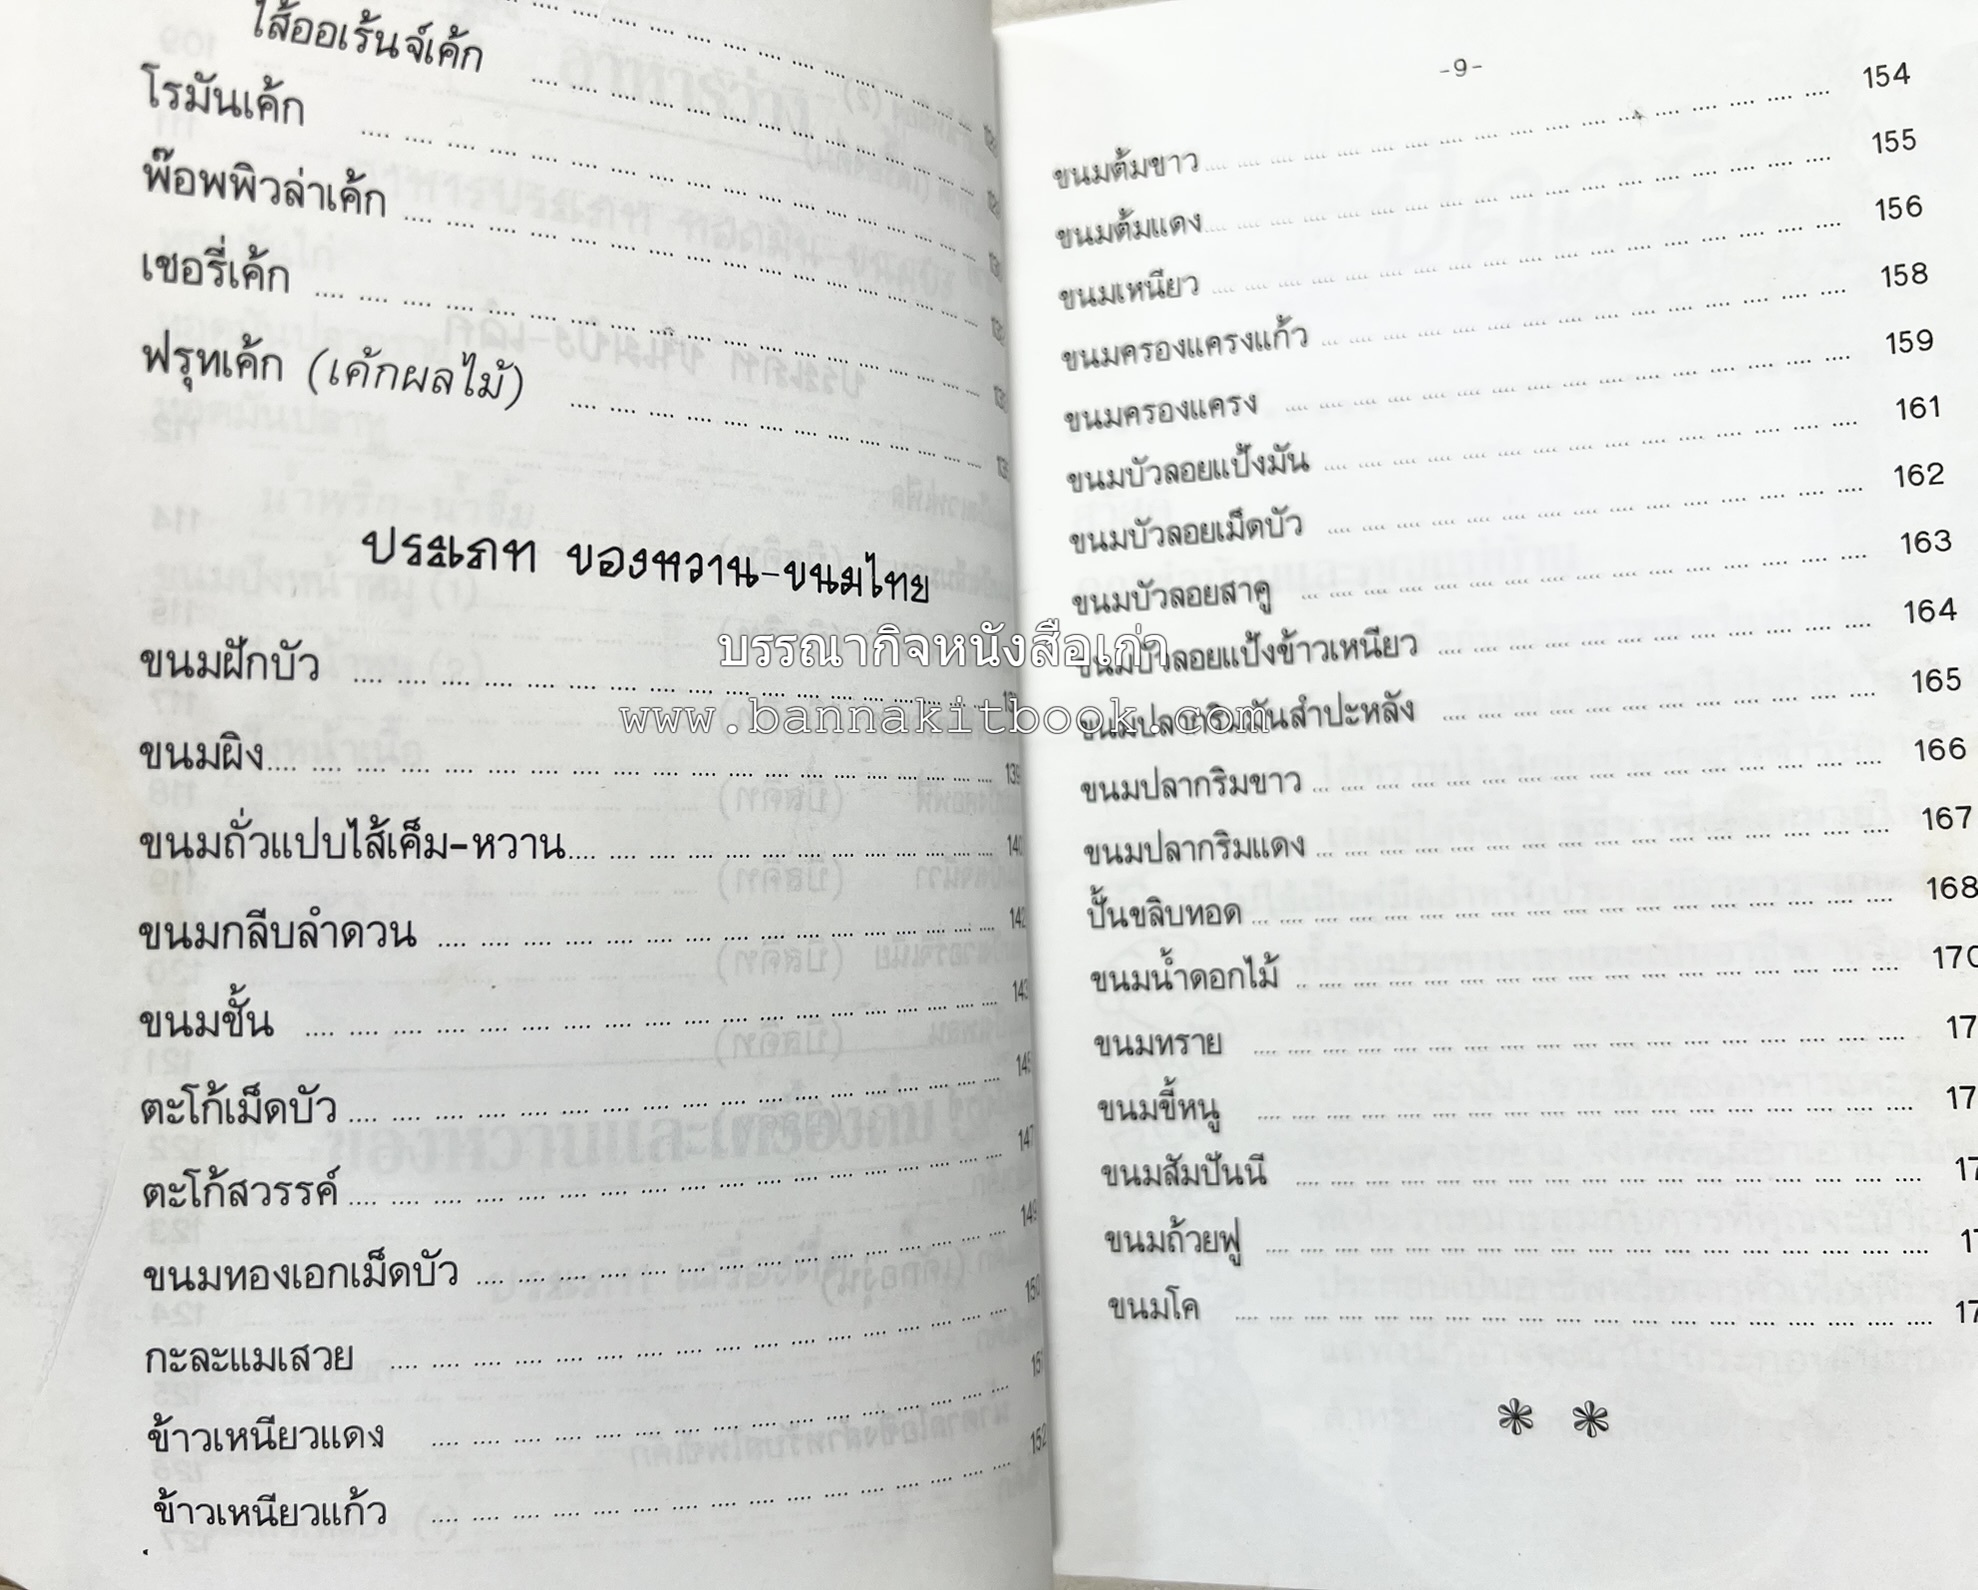 ไส้ออเร้นจ์เค้ก
โรมันเค้ก
พ๊อพพิวล่าเค้ก
เชอรี่เค้ก
ฟรุทเค้ก (เค้กผลไม้)
ประเภท ของหวาน-ขนมไทย
ขนมฝักบัว
ขนมผิง 139
ขนมถั่วแปบไส้เค็ม-หวาน 140
ขนมกลีบลำดวน 142
ขนมชั้น 143
ตะโก้เม็ดบัว 145
ตะโก้สวรรค์ 147
ขนมทองเอกเม็ดบัว 149
กะละแมเสวย 150
ข้าวเหนียวแดง 151
ข้าวเหนียวแก้ว 152
-9-
ขนมต้มขาว 154
ขนมต้มแดง 155
ขนมเหนียว 156
ขนมครองแครงแก้ว 158
ขนมครองแครง 159
ขนมบัวลอยแป้งมัน 161
ขนมบัวลอยเม็ดบัว 162
ขนมบัวลอยสาคู 163
ขนมบัวลอยแป้งข้าวเหนียว 164
ขนมปลากริมมันสำปะหลัง 165
ขนมปลากริมขาว 166
ขนมปลากริมแดง 167
ปั้นขลิบทอด 168
ขนมน้ำดอกไม้ 170
ขนมทราย
ขนมขี้หนู
ขนมสัมปันนี
ขนมถ้วยฟู
ขนมโค
บรรณากิจหนังสือเก่า
www.bannakitbook.com